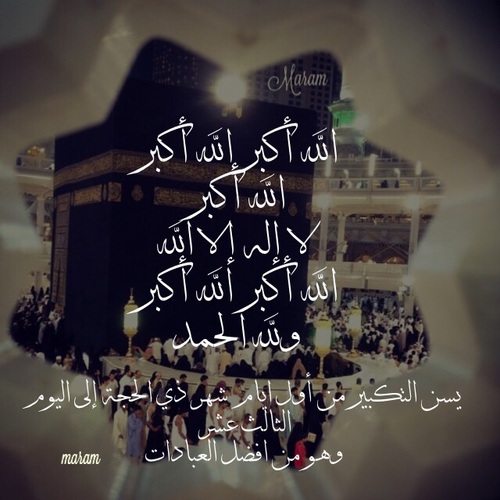 Maram
الله أكبر الله أكبر
الله أكبر
لا إله إلا الله
الله أكبر الله أكبر
ولله الحمد
يسن التكبير من أول ايام شهر ذي الحجة إلى اليوم
الثالث عشر
وهو من افضل العبادات
maram